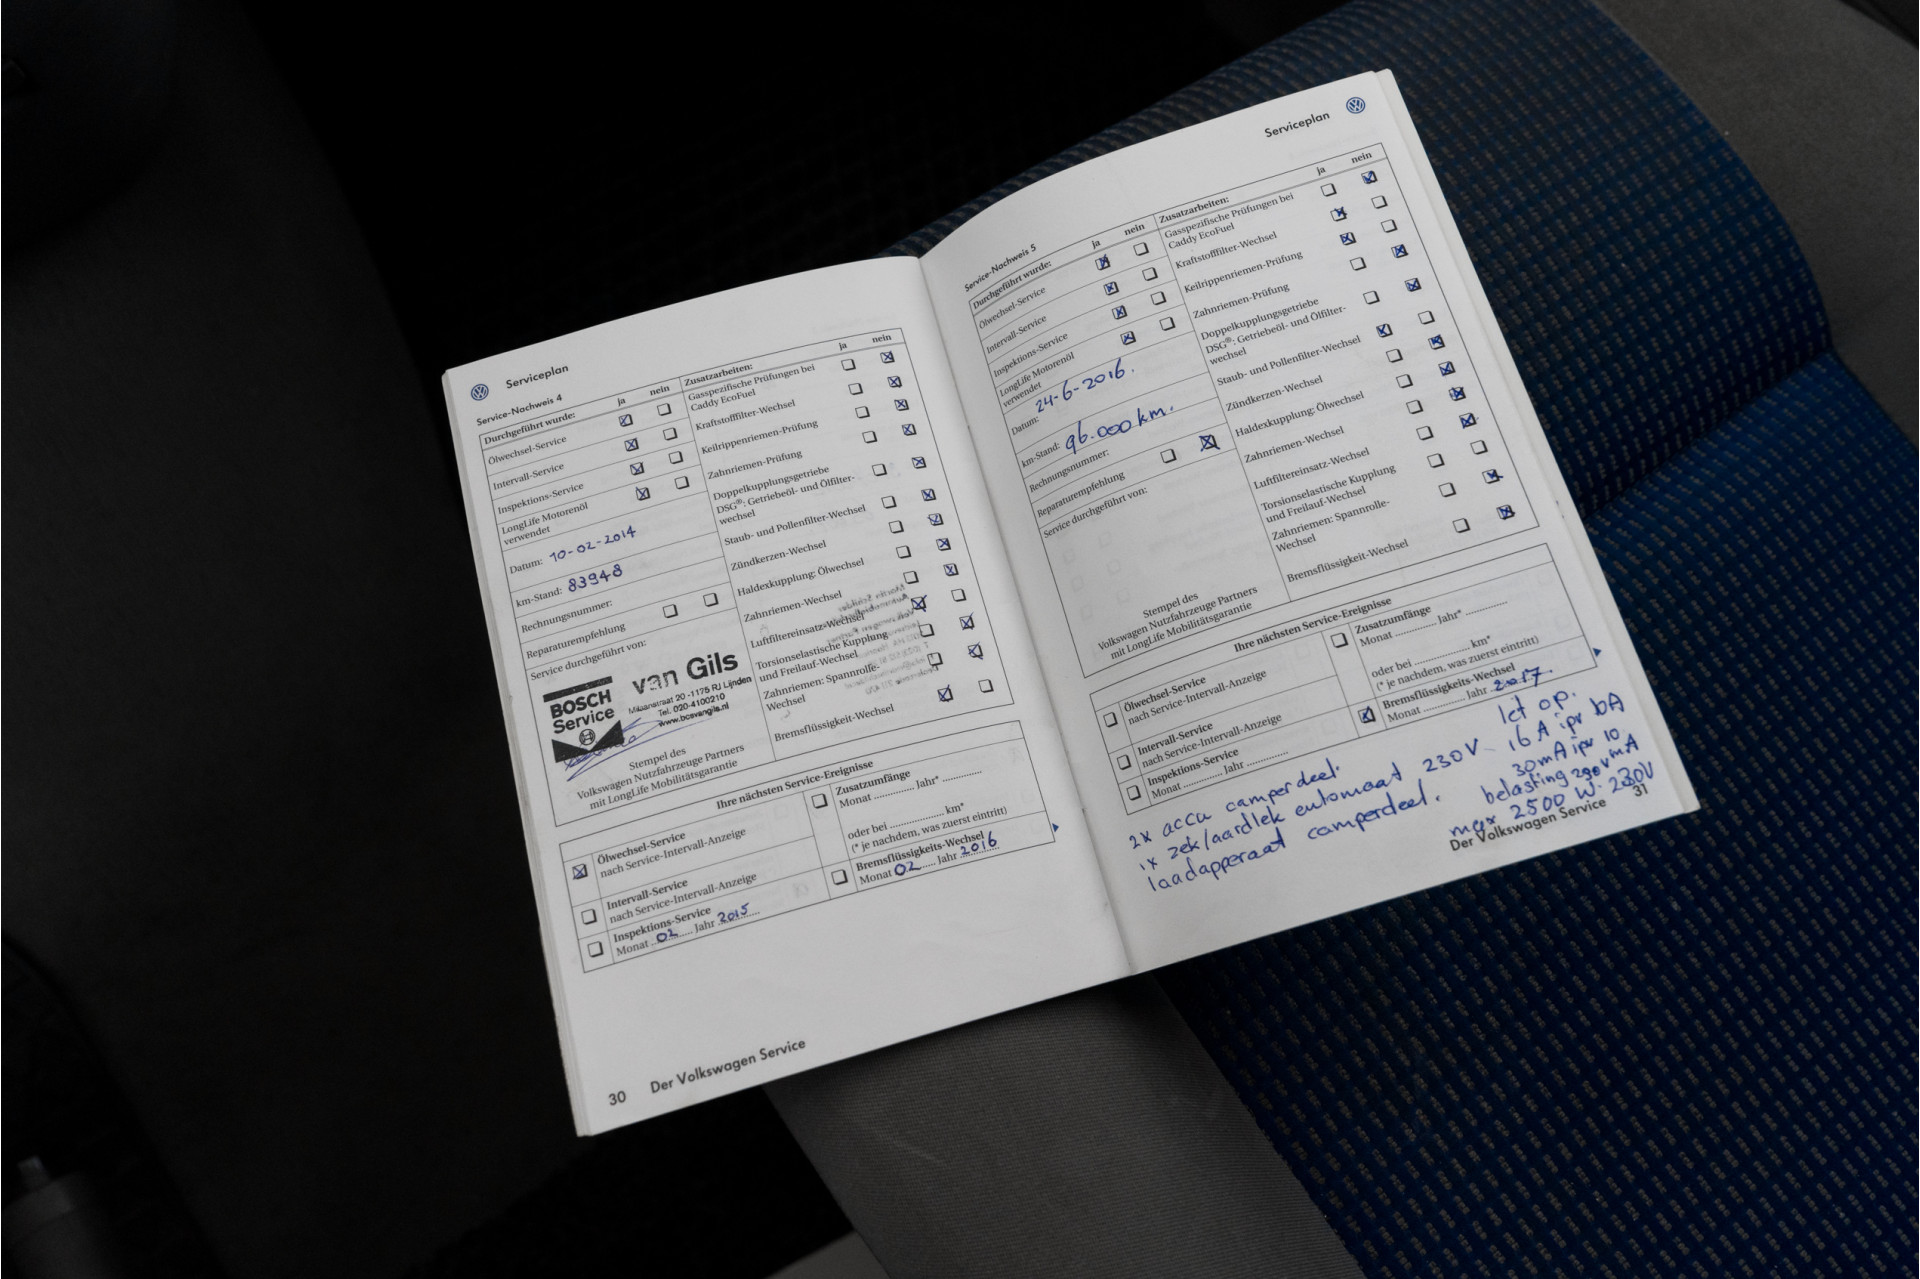 Serviceplan
Service-Nachweis 4
Durchgeführt wurde: ja nein
Ölwechsel-Service
Intervall-Service
Inspektions-Service
LongLife Motorenöl
verwendet
Datum: 10-02-2014
km-Stand: 83948
Rechnungsnummer:
Reparaturempfehlung
Service durchgeführt von:
BOSCH
Service
van Gils
20 - 1175 RJ Lijnden
Tel. 020-4100210
www.bcsvangils.nl
Stempel des
Volkswagen Nutzfahrzeuge Partners
mit LongLife Mobilitätsgarantie
Zusatzarbeiten: ja nein
Gasspezifische Prüfungen bei
Caddy EcoFuel
Kraftstofffilter-Wechsel
Keilrippenriemen-Prüfung
Zahnriemen-Prüfung
Doppelkupplungsgetriebe
DSG®: Getriebeöl- und Ölfilter-
wechsel
Staub- und Pollenfilter-Wechsel
Zündkerzen-Wechsel
Haldexkupplung: Ölwechsel
Zahnriemen-Wechsel
Luftfiltereinsatz-Wechsel
Torsionselastische Kupplung
und Freilauf-Wechsel
Zahnriemen: Spannrolle-
Wechsel
Bremsflüssigkeit-Wechsel
Ihre nächsten Service-Ereignisse
Ölwechsel-Service
nach Service-Intervall-Anzeige
Intervall-Service
nach Service-Intervall-Anzeige
Inspektions-Service
Monat 02 Jahr 2015
Zusatzumfänge
Monat .............. Jahr* ..............
oder bei .................... km*
(* je nachdem, was zuerst eintritt)
Bremsflüssigkeits-Wechsel
Monat 02 Jahr 2016
30 Der Volkswagen Service
Serviceplan
Service-Nachweis 5
Durchgeführt wurde: ja nein
Ölwechsel-Service
Intervall-Service
Inspektions-Service
LongLife Motorenöl
verwendet
Datum: 24-6-2016.
km-Stand: 96.000 km.
Rechnungsnummer:
Reparaturempfehlung
Service durchgeführt von:
Stempel des
Volkswagen Nutzfahrzeuge Partners
mit LongLife Mobilitätsgarantie
Zusatzarbeiten: ja nein
Gasspezifische Prüfungen bei
Caddy EcoFuel
Kraftstofffilter-Wechsel
Keilrippenriemen-Prüfung
Zahnriemen-Prüfung
Doppelkupplungsgetriebe
DSG®: Getriebeöl- und Ölfilter-
wechsel
Staub- und Pollenfilter-Wechsel
Zündkerzen-Wechsel
Haldexkupplung: Ölwechsel
Zahnriemen-Wechsel
Luftfiltereinsatz-Wechsel
Torsionselastische Kupplung
und Freilauf-Wechsel
Zahnriemen: Spannrolle-
Wechsel
Bremsflüssigkeit-Wechsel
Ihre nächsten Service-Ereignisse
Ölwechsel-Service
nach Service-Intervall-Anzeige
Intervall-Service
nach Service-Intervall-Anzeige
Inspektions-Service
Monat .............. Jahr ..............
Zusatzumfänge
Monat .............. Jahr* ..............
oder bei .................... km*
(* je nachdem, was zuerst eintritt)
Bremsflüssigkeits-Wechsel
Monat .............. Jahr 2017.
2x accu camperdeel.
1x zek/aardlek automaat 230V
laadapperaat camperdeel.
let op.
16A ipv 6A
30mA ipv 10 mA
belasting 230V
max 2500 W. 230V
Der Volkswagen Service 31